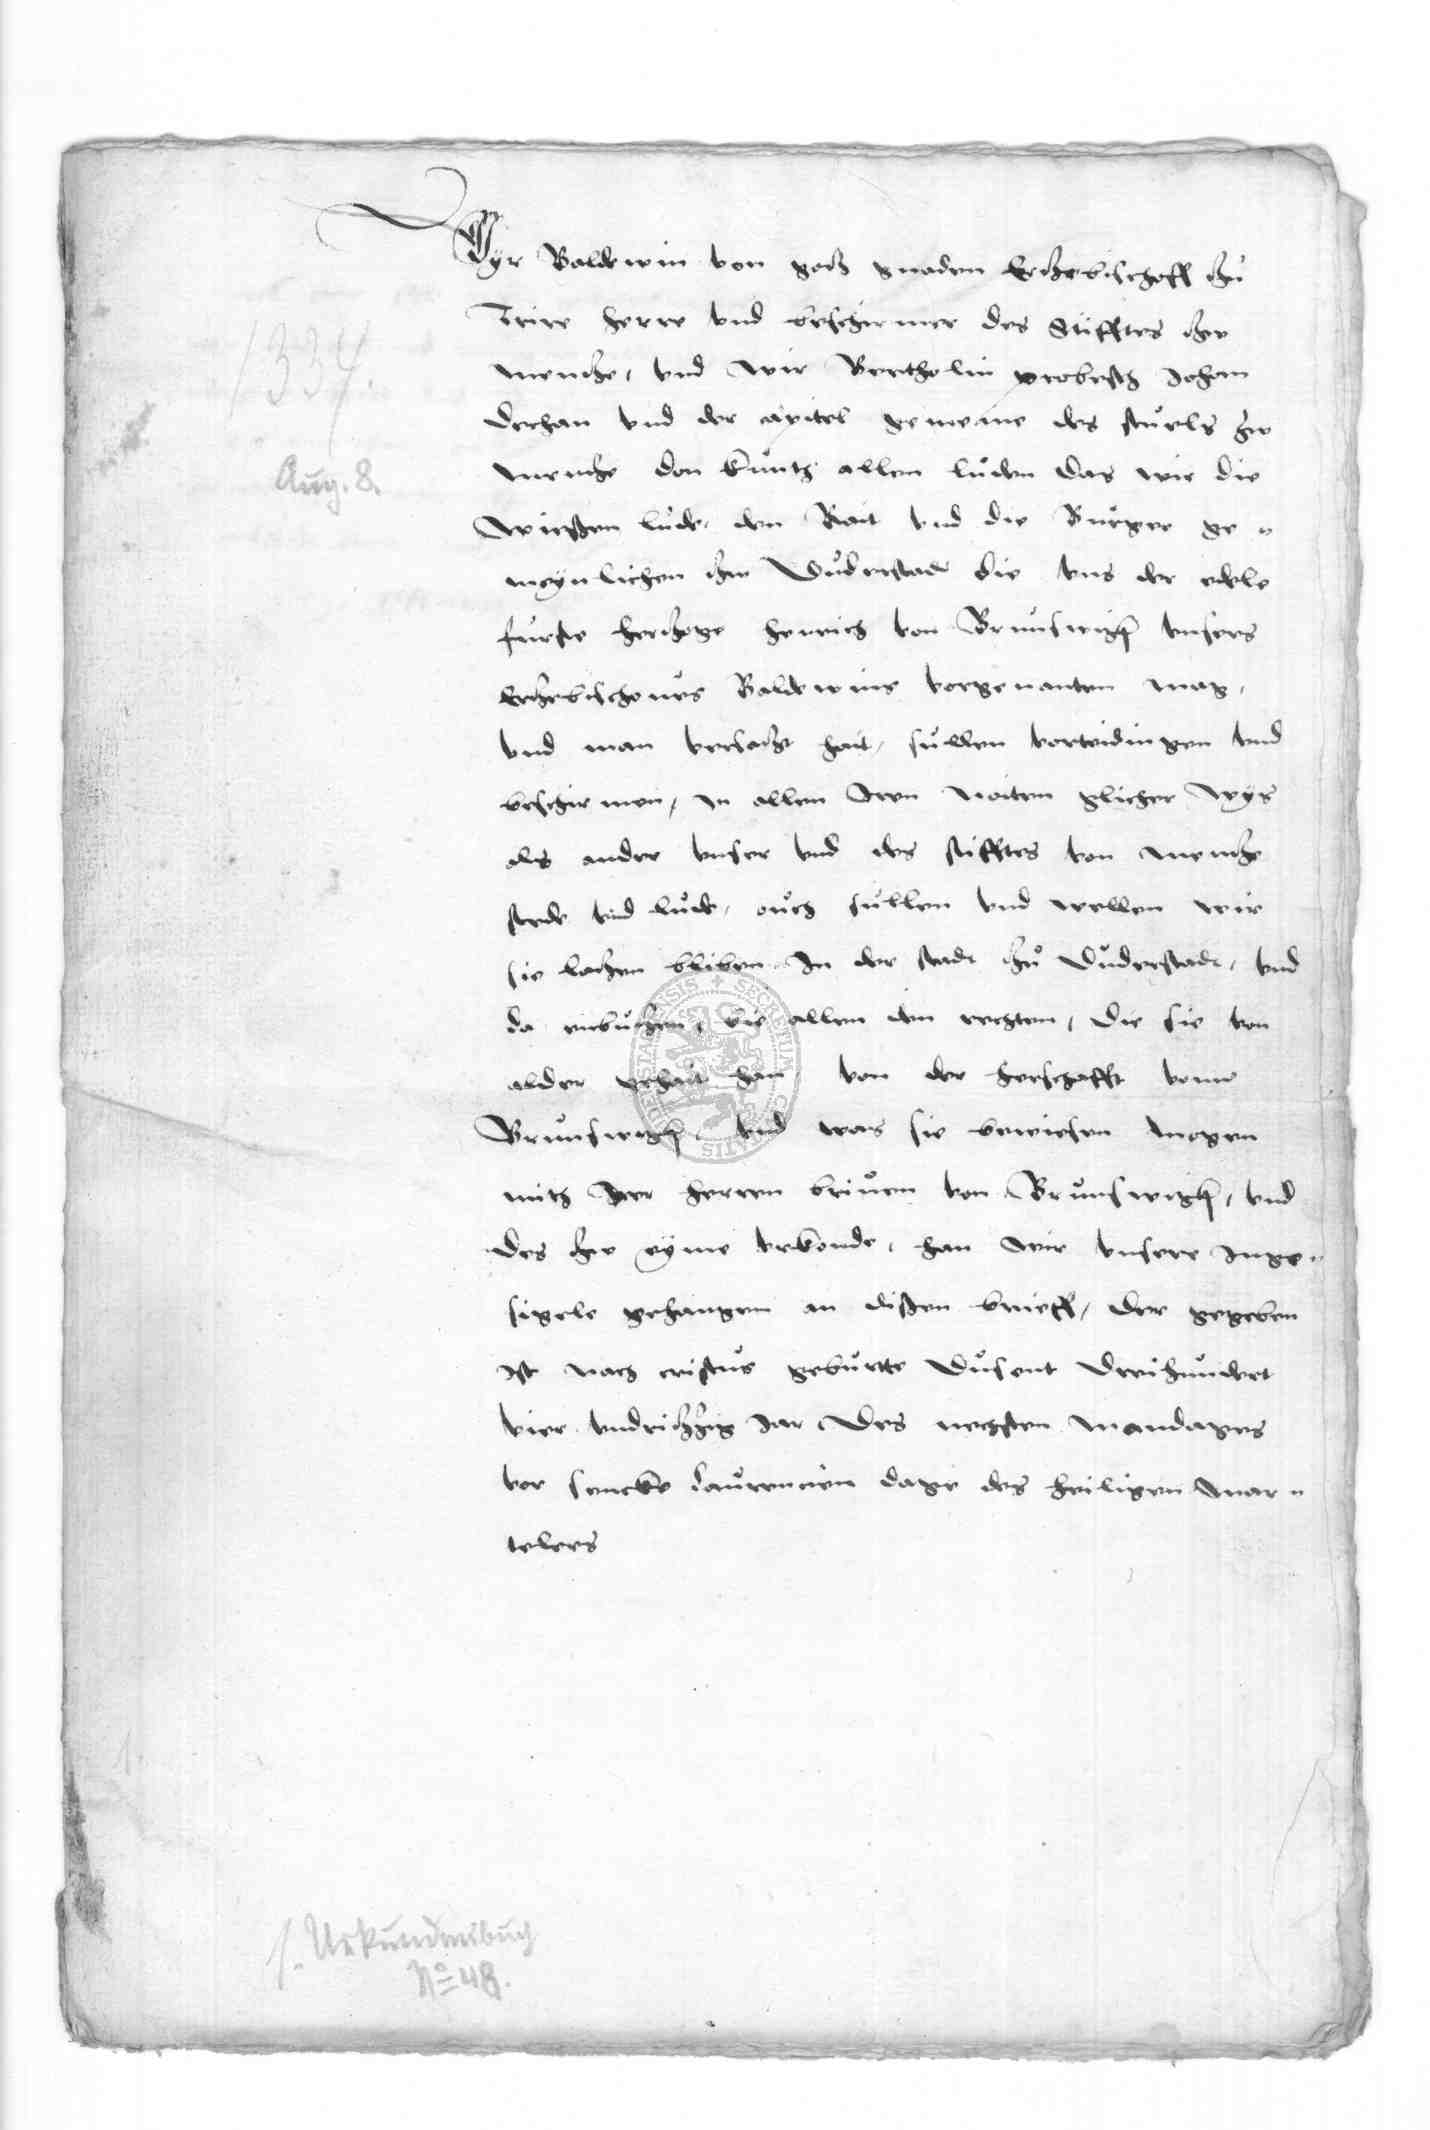 Wyr Baldewin von gotz gnaden Ertzebischoff tzu
Trire herre vnd beschirmer des Stifftes tzu
mentze, vnd wir Bertholin probesth Johan
dechan vnd der capitel gemeane des stuels zu
mentze don kunth allen luden das wir die
wießen lude, den Rait vnd die Burger ge-
meynlichen tzu Duderstadt die vns der edele
furste hertzoge henrich von Brunswigk vnsers
Ertzebischoues Baldewins vorgenanten mag,
vnd man versatzt hait, sullen vorteidingen vnd
beschirmen, in allen Iren noiten glicher wys
als ander vnser vnd des stifftes von mentze
stede vnd lude, ouch sullen vnd wellen wir
sie laßen bliben In der stadt tzu Duderstadt, vnd
da enbußen, bie allen den rechten, die sie von
alder gehait han von der herschafft vonn
Brunswigk, vnd was sie bewiesen mogen
mith Irer herren briuen von Brunswigk, vnd
des tzu eyme vrkonde, han wir vnsere Inge-
sigele gehangen an dißen brieff, der gegeben
ist nach cristus geburtte Dusent Dreihundert
vier vndrißzig Jar, des nechsten mandages
vor sencte Laurencien dage des heiligen mar-
telers
1334.
Aug. 8.
s. Urkundenbuch
No 48.